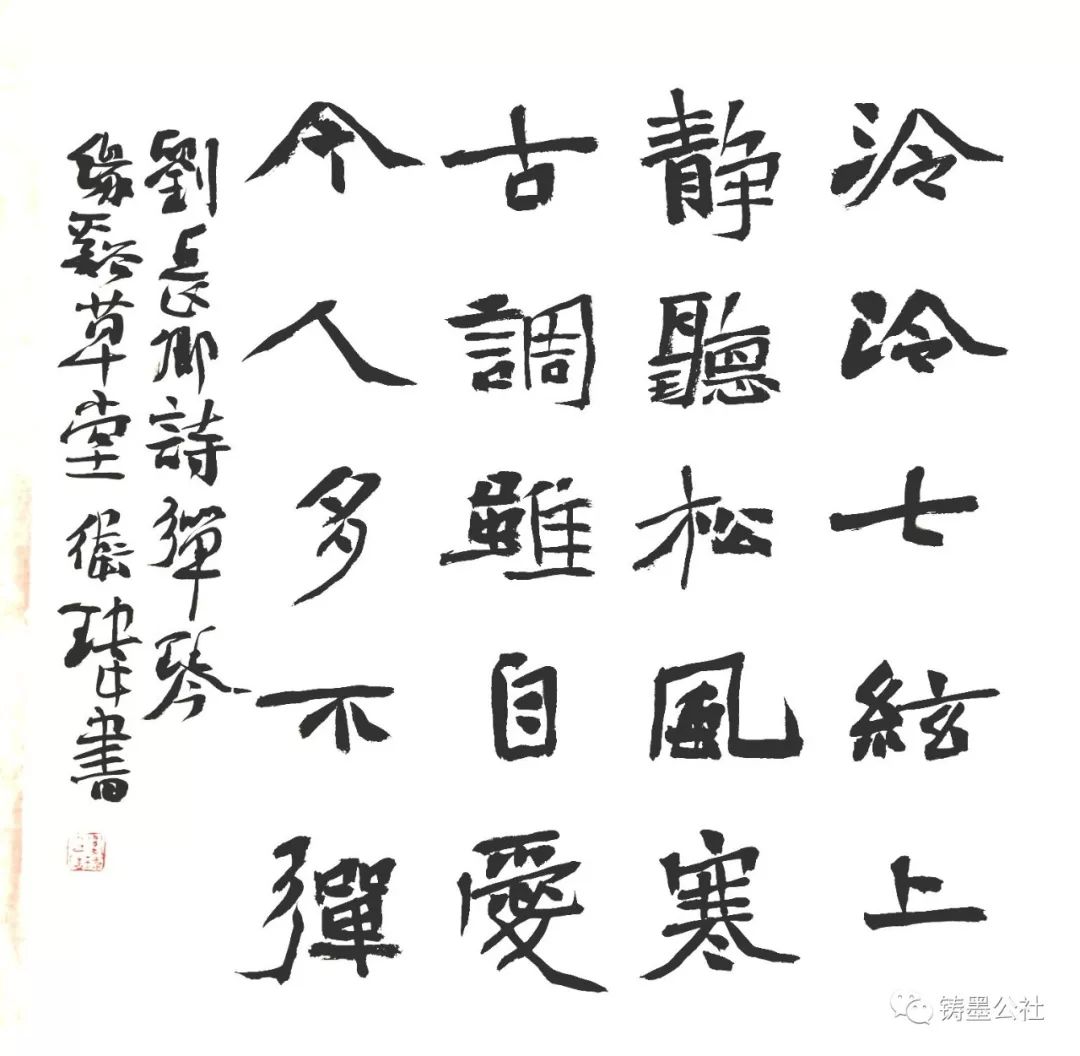 泠泠七絃上
静聽松風寒
古調雖自愛
今人多不彈
劉長卿詩彈琴
草堂 瑋書
铸墨公社